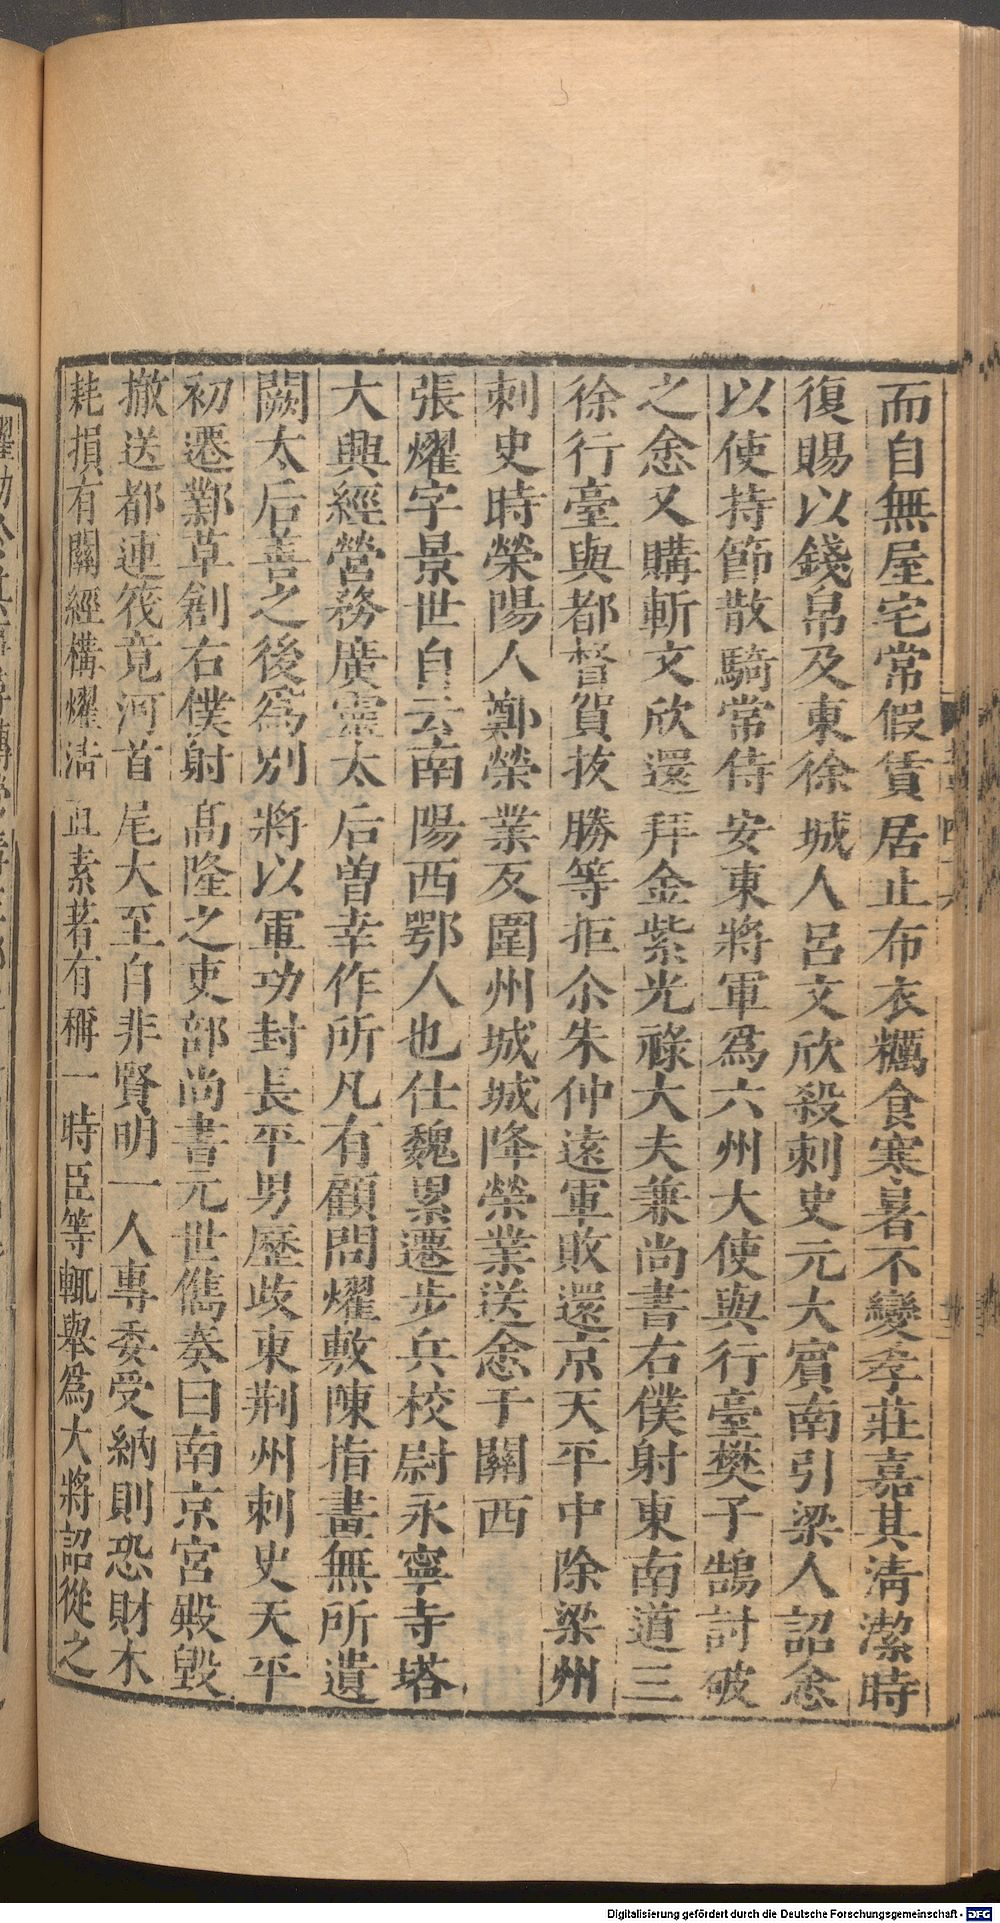 而自無屋宅常假賃居止布衣糲食寒暑不變孝莊嘉其清潔時
復賜以錢帛及東徐城人呂文欣殺刺史元大賓南引梁人詔悆
以使持節散騎常侍安東將軍爲六州大使與行臺樊子鵠討破
之悆又購斬文欣還拜金紫光祿大夫兼尚書右僕射東南道三
徐行臺與都督賀拔勝等拒尒朱仲遠軍敗還京天平中除梁州
刺史時榮陽人鄭榮業反圍州城城降榮業送悆于關西
張燿字景世自云南陽西鄂人也仕魏累遷步兵校尉永寧寺塔
大興經營務廣靈太后曽幸作所凡有顧問燿敷陳指畫無所遺
闕太后善之後爲別將以軍功封長平男歷歧東荆州刺史天平
初遷鄴草創右僕射髙隆之吏部尚書元世儁奏曰南京宮殿毀
撤送都連筏竟河首尾大至自非賢明一人專委受納則恐財木
耗損有關經構燿清直素著有稱一時臣等輒舉爲大將詔從之
Digitalisierung gefördert durch die Deutsche Forschungsgemeinschaft - DFG